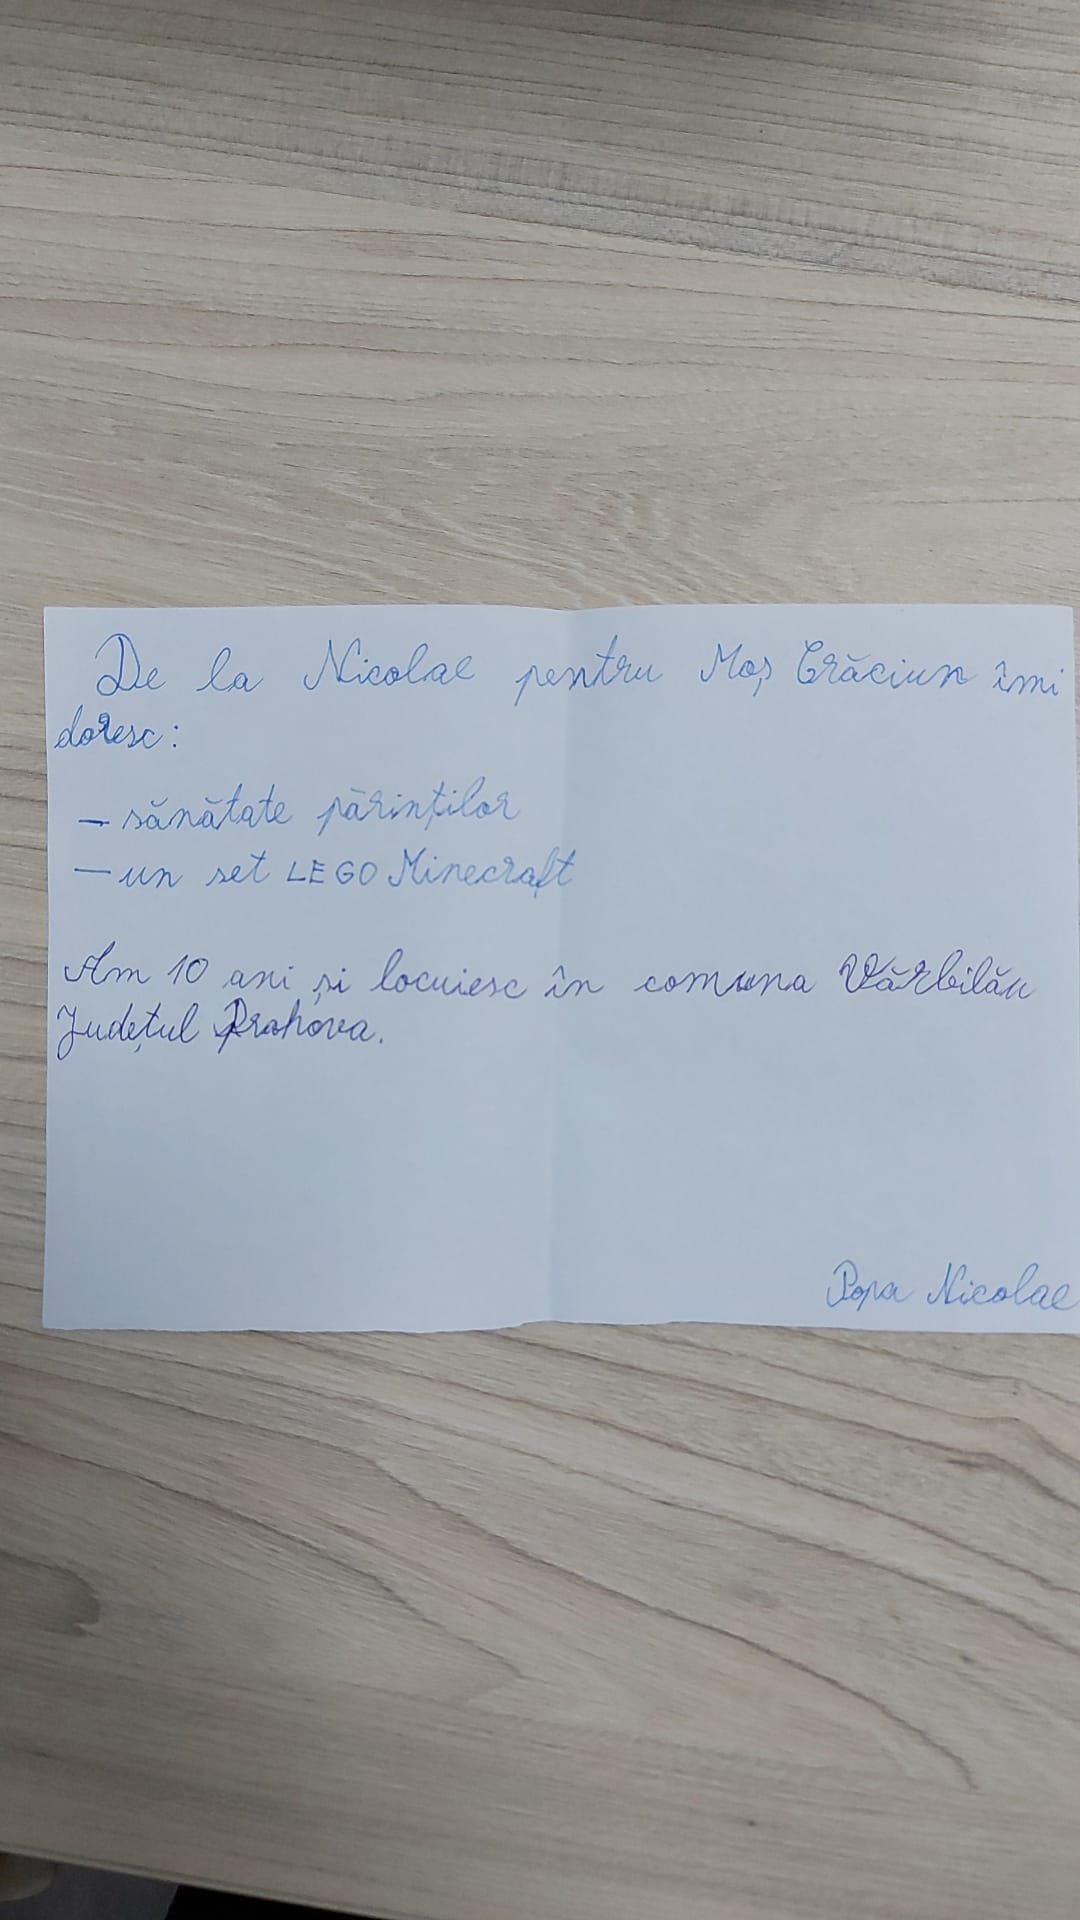 De la Nicolae pentru Moș Crăciun îmi
doresc:
- sănătate părinților
- un set LEGO Minecraft
Am 10 ani și locuiesc în comuna Vărbilău
Județul Prahova.
Popa Nicolae